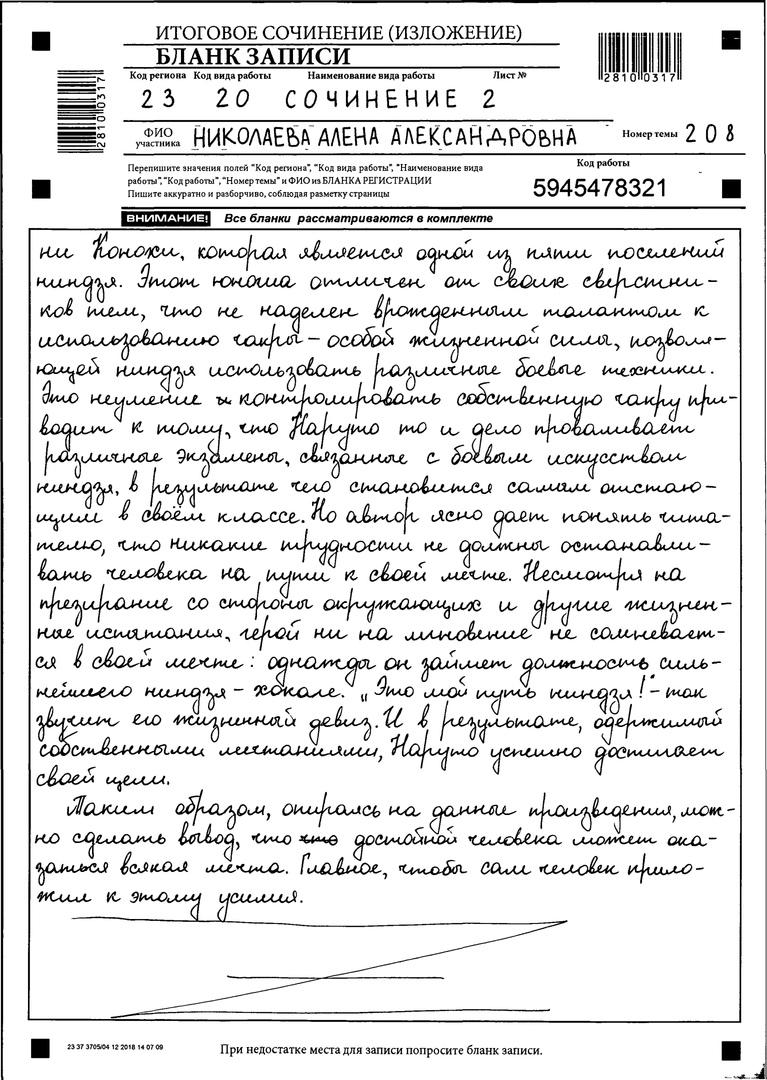 ИТОГОВОЕ СОЧИНЕНИЕ (ИЗЛОЖЕНИЕ)
БЛАНК ЗАПИСИ
Код региона Код вида работы Наименование вида работы Лист №
23 20 СОЧИНЕНИЕ 2
2810 0317
2810 0317
ФИО участника НИКОЛАЕВА АЛЕНА АЛЕКСАНДРОВНА Номер темы 208
Перепишите значения полей "Код региона", "Код вида работы", "Наименование вида
работы", "Код работы", "Номер темы" и ФИО из БЛАНКА РЕГИСТРАЦИИ
Пишите аккуратно и разборчиво, соблюдая разметку страницы
Код работы
5945478321
ВНИМАНИЕ! Все бланки рассматриваются в комплекте
ни Конохи, которая является одной из пяти поселений
ниндзя. Этот юноша отличен от своих сверстни-
ков тем, что не наделен врожденным талантом к
использованию чакры – особой жизненной силы, позволя-
ющей ниндзя использовать различные боевые техники.
Это неумение контролировать собственную чакру при-
водит к тому, что Наруто то и дело проваливает
различные экзамены, связанные с боевым искусством
ниндзя, в результате чего становится самым отстаю-
щим в своём классе. Но автор ясно дает понять чита-
телю, что никакие трудности не должны останавли-
вать человека на пути к своей мечте. Несмотря на
презирание со стороны окружающих и другие жизнен-
ные испытания, герой ни на мгновение не сомневает-
ся в своей мечте: однажды он займет должность силь-
нейшего ниндзя – хокаге. „Это мой путь ниндзя!" – так
звучит его жизненный девиз. И в результате, одержимый
собственными мечтаниями, Наруто успешно достигает
своей цели.
Таким образом, опираясь на данные произведения, мож-
но сделать вывод, что что достойной человека может ока-
заться всякая мечта. Главное, чтобы сам человек прило-
жил к этому усилия.
23 37 3705/04 12 2018 14 07 09
При недостатке места для записи попросите бланк записи.